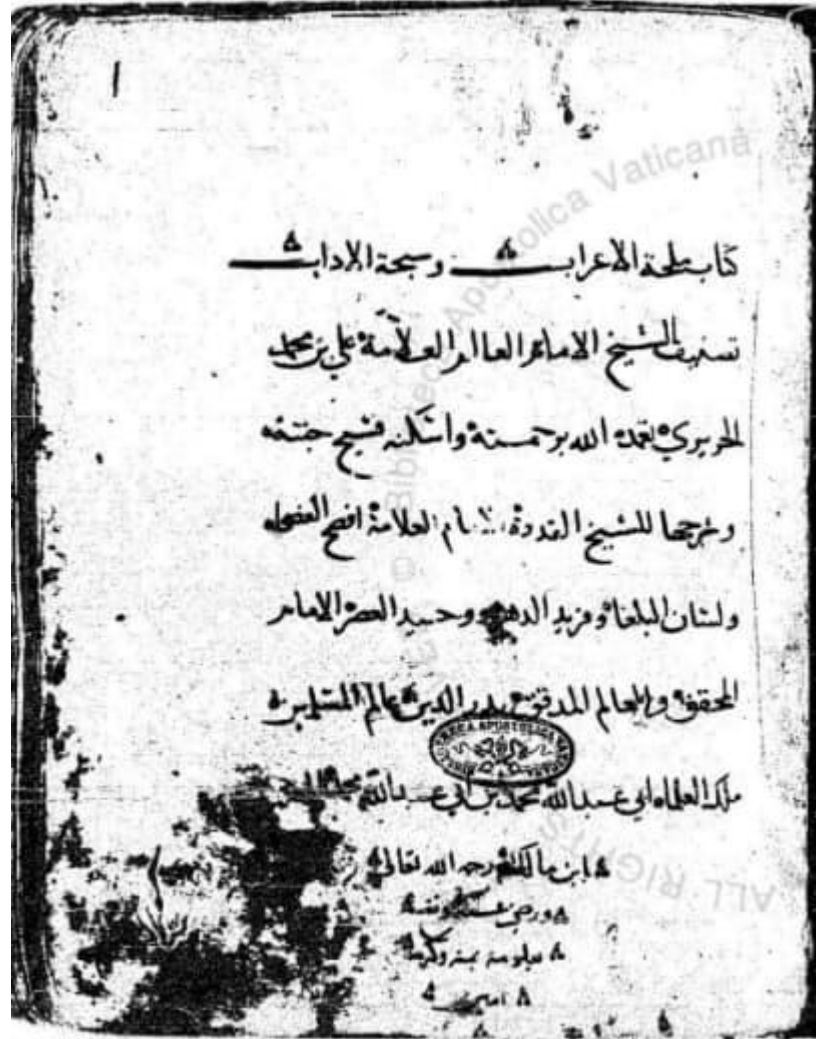 كتاب ملحة الاعراب وسبحة الاداب
تصنيف الشيخ الامام العالم العلامة علي بن محمد
الحريري تغمده الله برحمته واسكنه فسيح جنته
وشرحها للشيخ القدوة الامام العلامة افصح الفصحاء
ولسان البلغاء وفريد الدهر ووحيد العصر الامام
المحقق والعالم المدقق بدر الدين عالم المسلمين
ملك العلماء ابي عبدالله محمد بن ابي عبدالله محمد
ابن مالك رحمه الله تعالى
ورضي عنه
بمنه وكرمه
امين